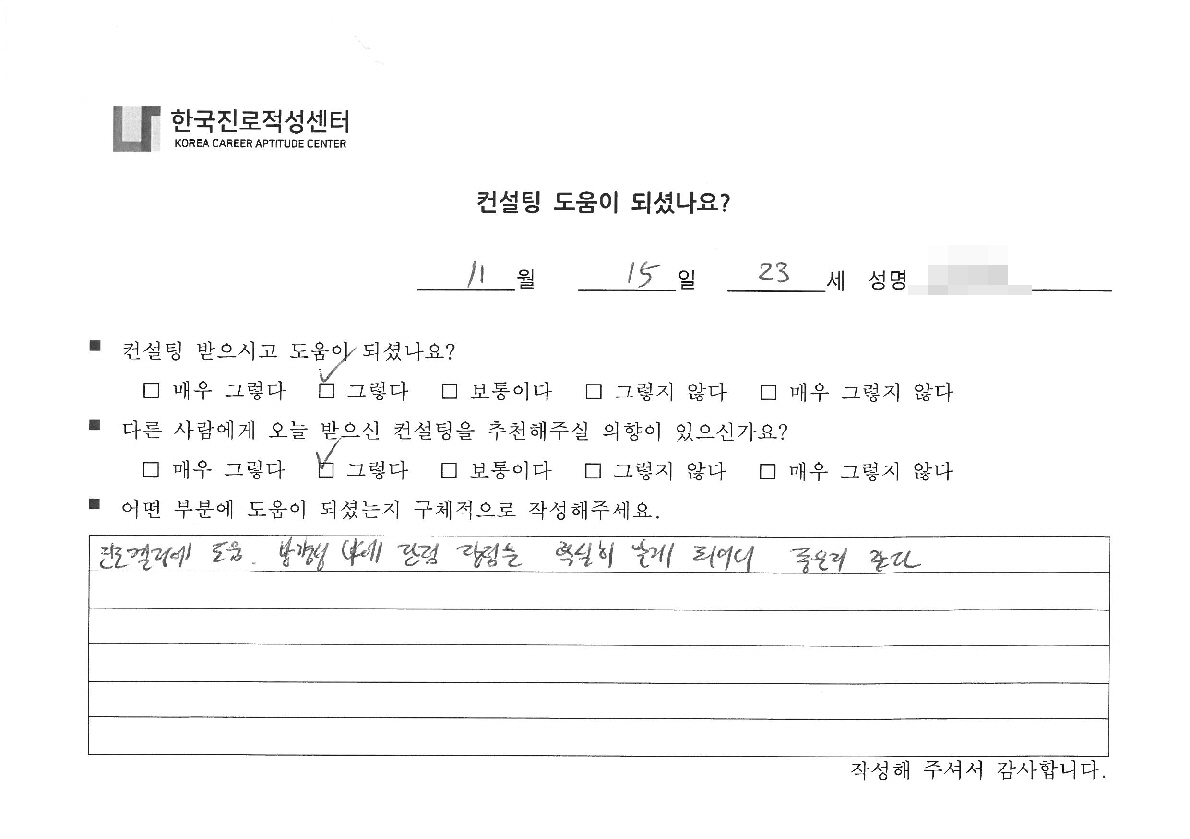 한국진로적성센터
KOREA CAREER APTITUDE CENTER
컨설팅 도움이 되셨나요?
11 월 15 일 23 세 성명
■ 컨설팅 받으시고 도움이 되셨나요?
□ 매우 그렇다 ☑ 그렇다 □ 보통이다 □ 그렇지 않다 □ 매우 그렇지 않다
■ 다른 사람에게 오늘 받으신 컨설팅을 추천해주실 의향이 있으신가요?
□ 매우 그렇다 ☑ 그렇다 □ 보통이다 □ 그렇지 않다 □ 매우 그렇지 않다
■ 어떤 부분에 도움이 되셨는지 구체적으로 작성해주세요.
진로결정에 도움. 방향성 장점을 확실히 알게 되어서 좋은거 같다
작성해 주셔서 감사합니다.